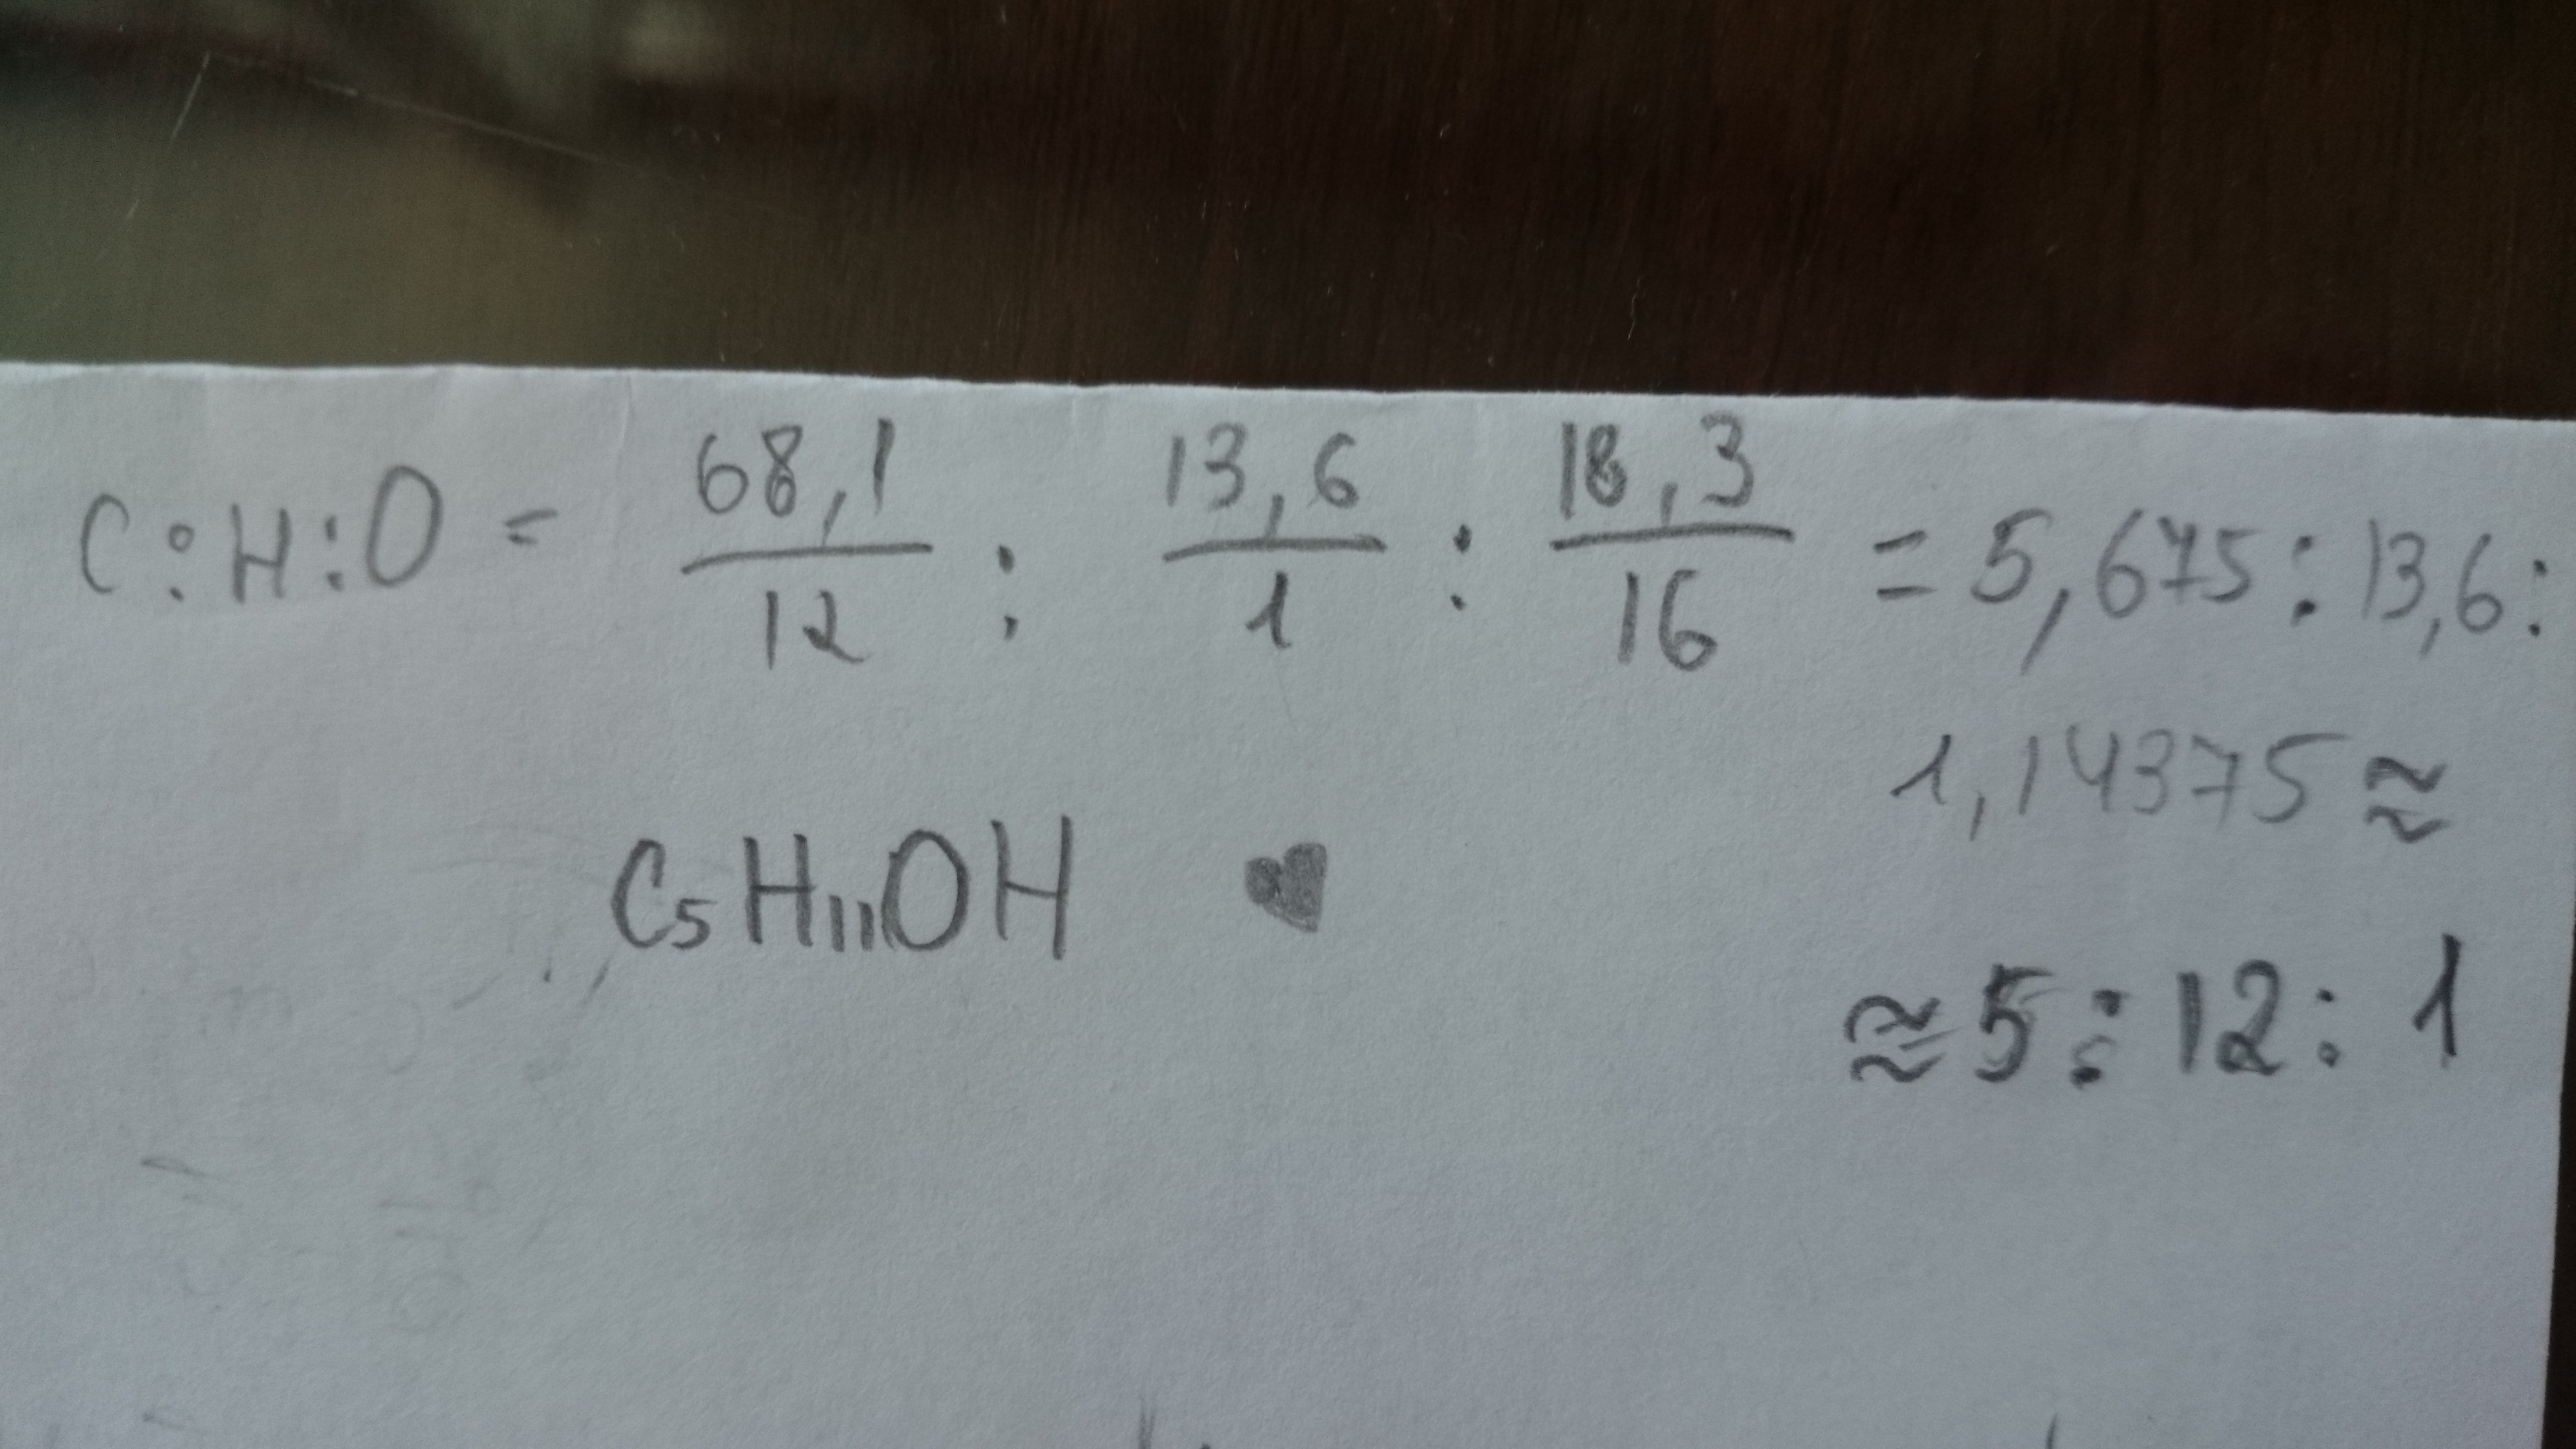 C:H:O = 68,1/12 : 13,6/1 : 18,3/16 = 5,675 : 13,6 :
1,14375 ≈
≈ 5 : 12 : 1
C₅H₁₁OH